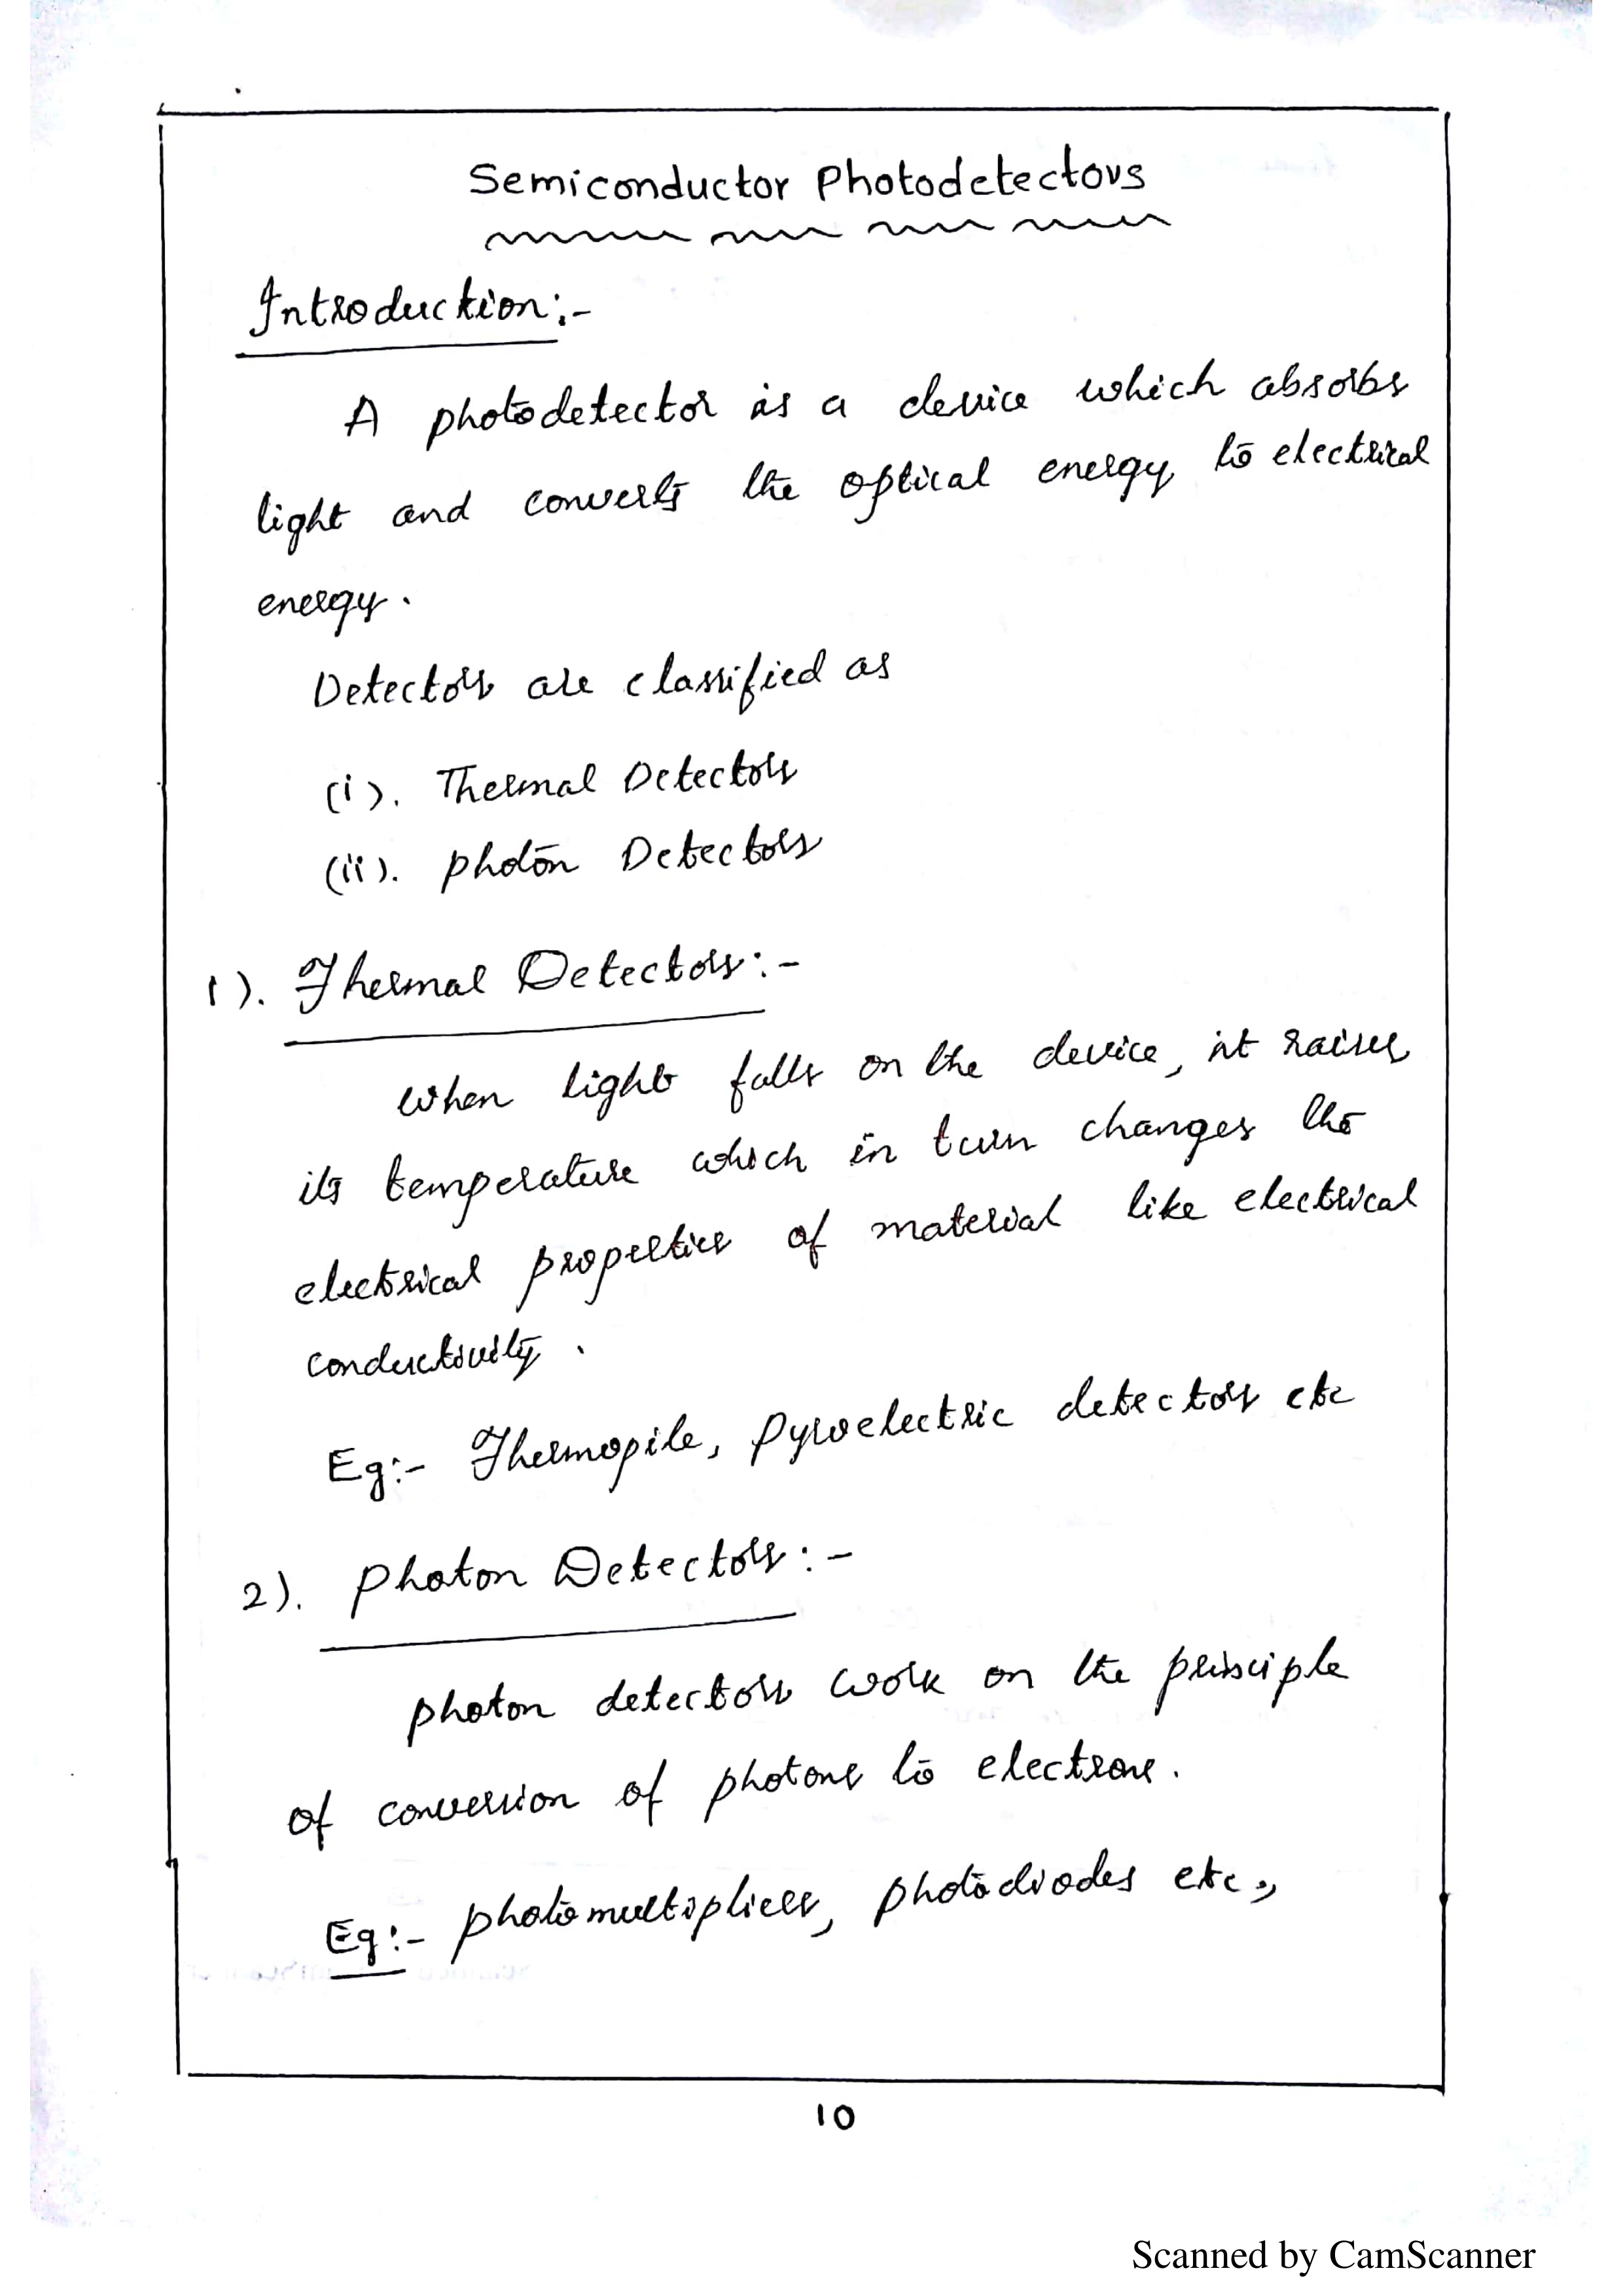 Semiconductor Photodetectors
Introduction:-
A photodetector is a device which absorbs
light and converts the optical energy to electrical
energy.
Detectors are classified as
(i). Thermal Detectors
(ii). photon Detectors
1). Thermal Detectors:-
when light falls on the device, it raises
its temperature which in turn changes the
electrical properties of material like electrical
conductivity.
Eg:- Thermopile, Pyroelectric detectors etc
2). Photon Detectors:-
photon detectors work on the principle
of conversion of photons to electrons.
Eg:- photomultiplier, photodiodes etc.,
10
Scanned by CamScanner